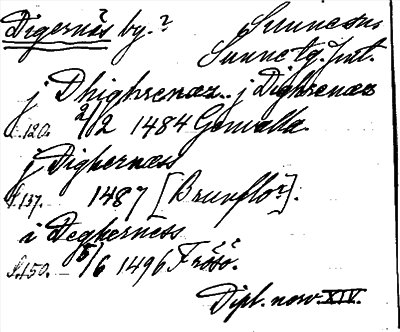 Digernäs by.?
Sunne sn.
Sunne tg. Jmt.
j Dhighrenæs.. j Dighrenæs
s. 120. 2/2 1484 Gemalla.
j Dighernæss
s. 137. 1487 [Brunflo?].
i Degherness
s. 150. — 15/6 1496 Frösö.
Dipl. norv. XIV.